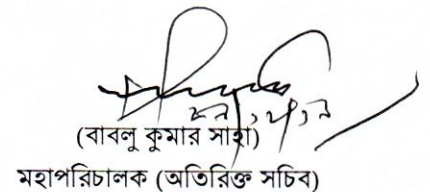 (বাবলু কুমার সাহা)
মহাপরিচালক (অতিরিক্ত সচিব)